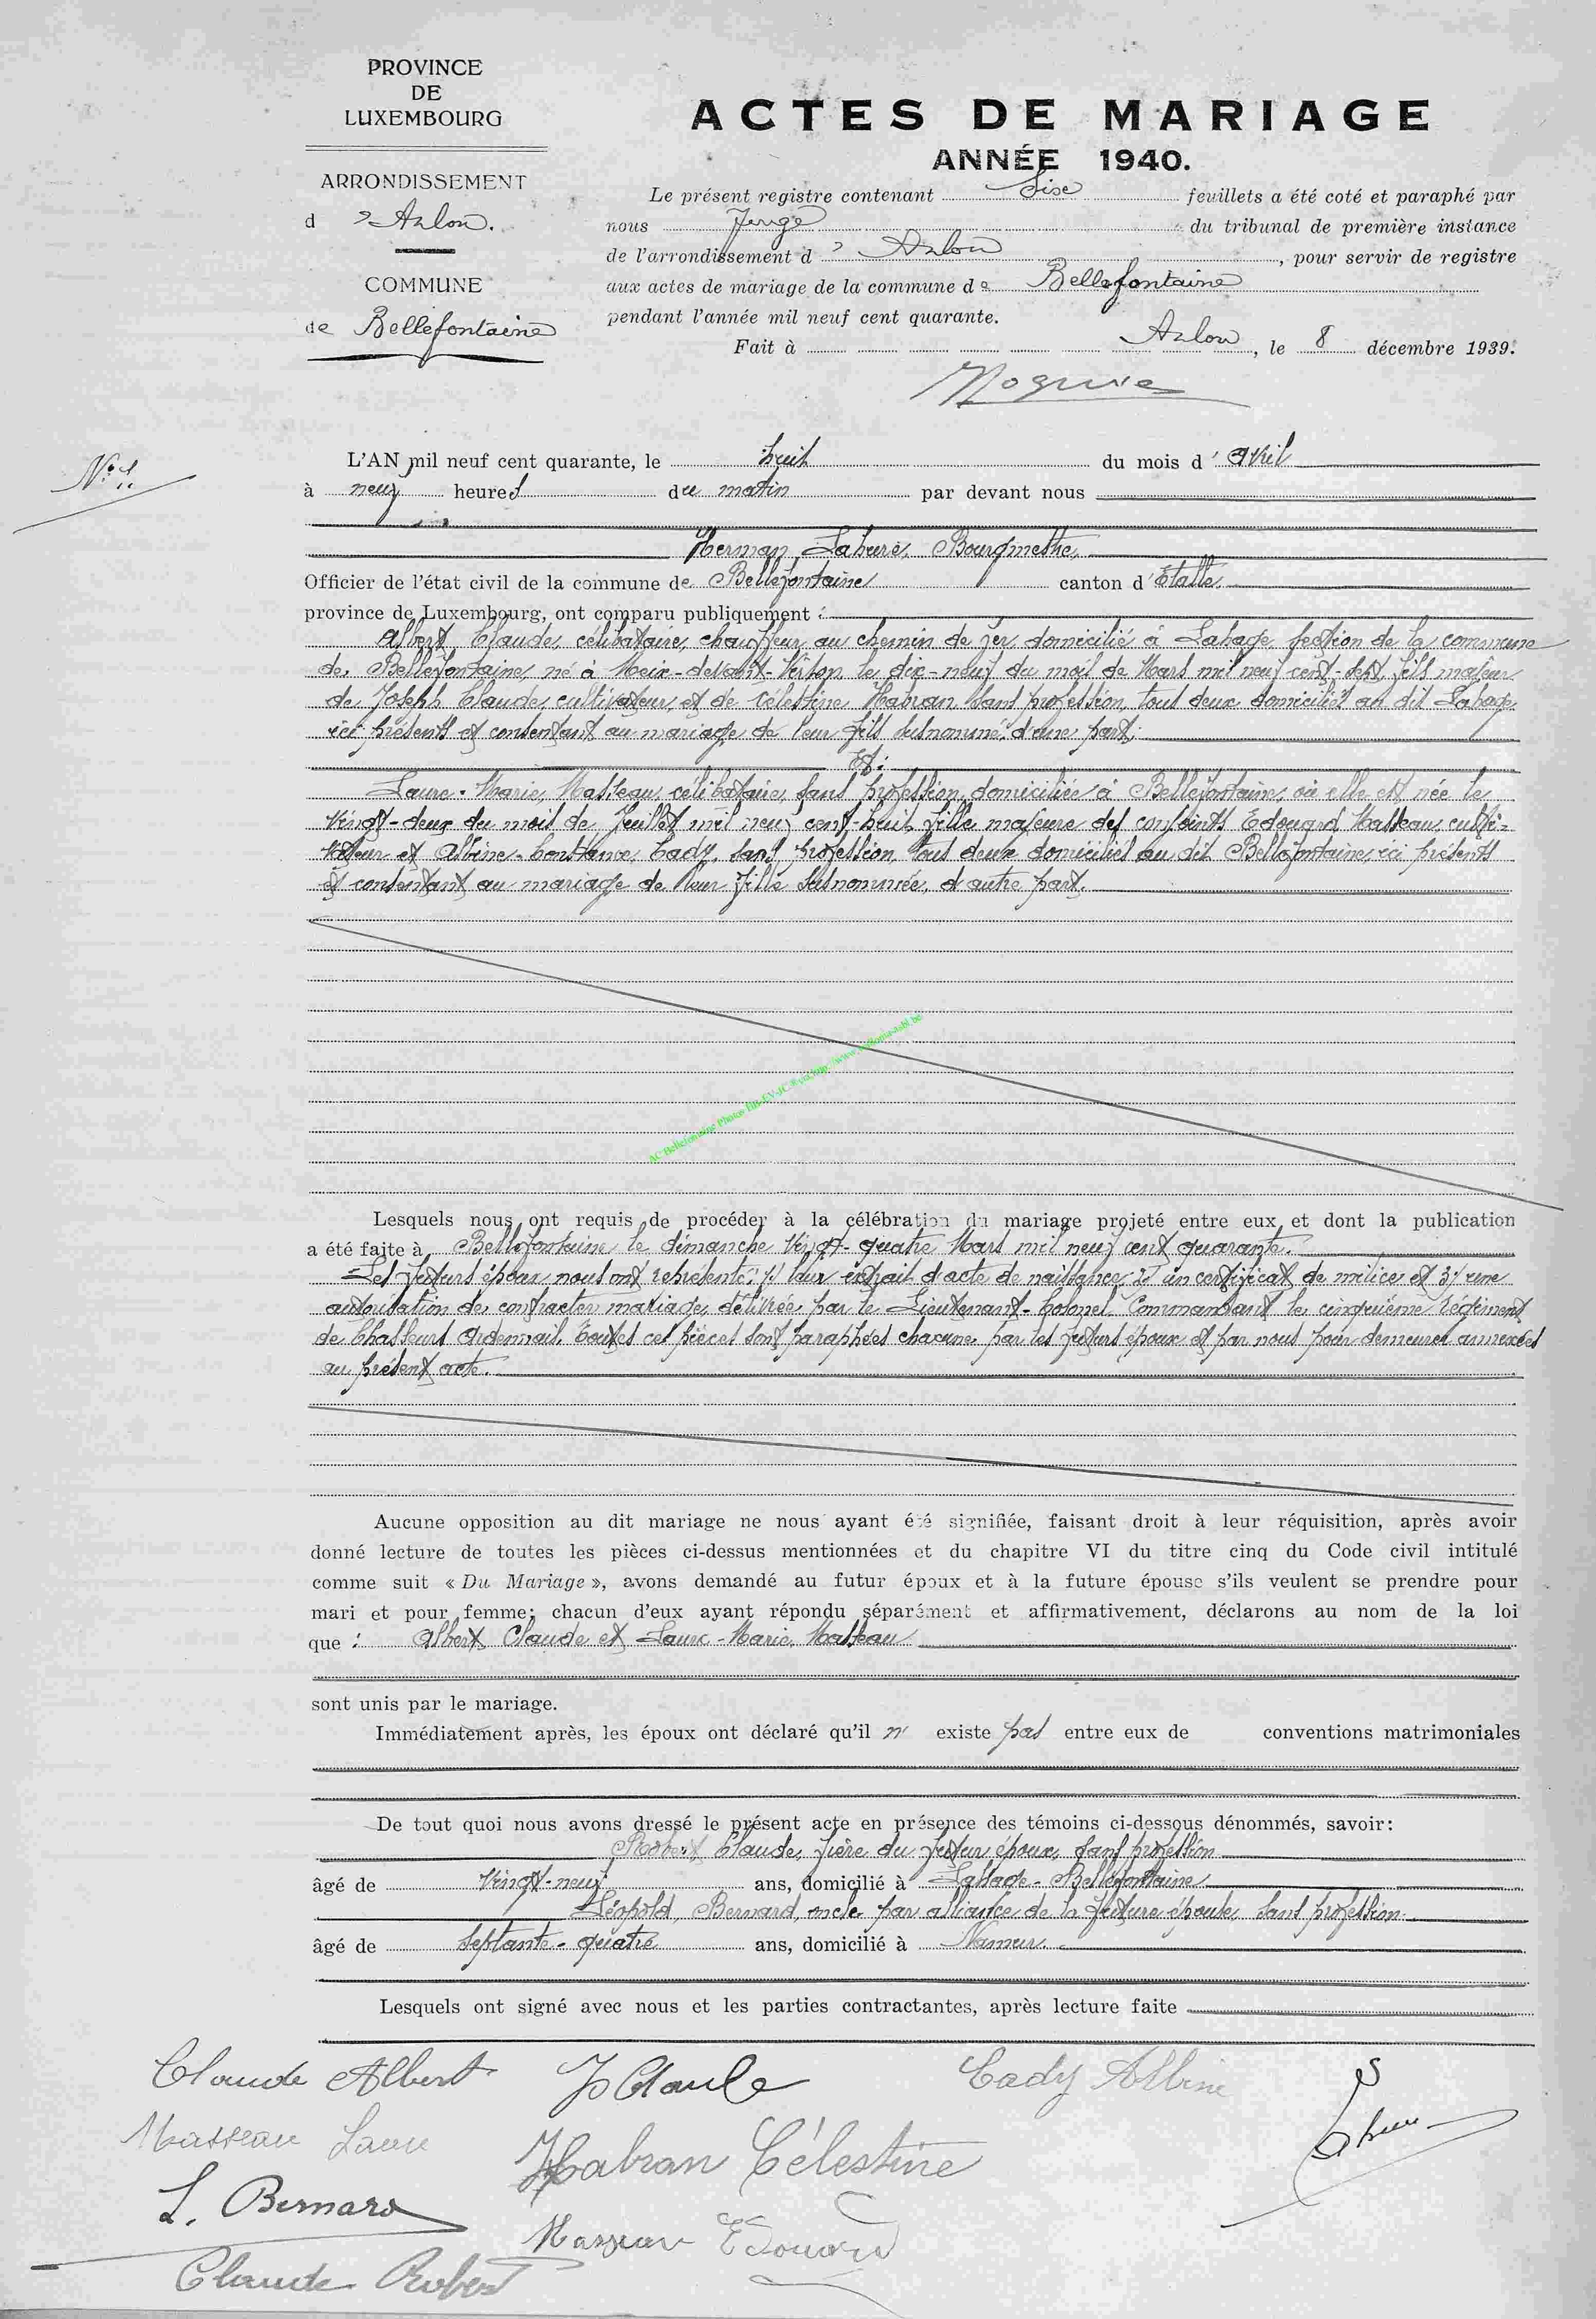 PROVINCE
DE
LUXEMBOURG
ARRONDISSEMENT
d'Arlon.
COMMUNE
de Bellefontaine
ACTES DE MARIAGE
ANNÉE 1940.
Le présent registre contenant Sise feuillets a été coté et paraphé par
nous Juge du tribunal de première instance
de l'arrondissement d'Arlon, pour servir de registre
aux actes de mariage de la commune de Bellefontaine
pendant l'année mil neuf cent quarante.
Fait à Arlon, le 8 décembre 1939.
N° 1.
L'AN mil neuf cent quarante, le huit du mois d'Avril
à neuf heures du matin par devant nous
Herman Lahure, Bourgmestre,
Officier de l'état civil de la commune de Bellefontaine canton d'Etalle
province de Luxembourg, ont comparu publiquement :
Albert Claude, célibataire, chauffeur au chemin de fer, domicilié à Lahage, section de la commune
de Bellefontaine, né à Meix-devant-Virton le dix-neuf du mois de Mars mil neuf cent-sept, fils majeur
de Joseph Claude, cultivateur, et de Célestine Habran sans profession, tous deux domiciliés au dit Lahage,
ici présents et consentant au mariage de leur fils susnommé, d'une part;
Et:
Laure-Marie, Masseau, célibataire, sans profession, domiciliée à Bellefontaine, où elle est née le
vingt-deux du mois de Juillet mil neuf cent-huit, fille majeure des conjoints Edouard Masseau, culti-
vateur et Albine-Constance, Cady, sans profession, tous deux domiciliés au dit Bellefontaine, ici présents
et consentant au mariage de leur fille susnommée, d'autre part.
AC Bellefontaine Photos
Lesquels nous ont requis de procéder à la célébration du mariage projeté entre eux et dont la publication
a été faite à Bellefontaine le dimanche vingt-quatre Mars mil neuf cent quarante.
Les futurs époux nous ont représenté: 1) leur extrait d'acte de naissance; 2) un certificat de milice et 3) une
autorisation de contracter mariage, délivrée par le Lieutenant-Colonel Commandant le cinquième régiment
de Chasseurs Ardennais. Toutes ces pièces sont paraphées chacune par les futurs époux et par nous pour demeurer annexées
au présent acte.
Aucune opposition au dit mariage ne nous ayant été signifiée, faisant droit à leur réquisition, après avoir
donné lecture de toutes les pièces ci-dessus mentionnées et du chapitre VI du titre cinq du Code civil intitulé
comme suit « Du Mariage », avons demandé au futur époux et à la future épouse s'ils veulent se prendre pour
mari et pour femme; chacun d'eux ayant répondu séparément et affirmativement, déclarons au nom de la loi
que : Albert Claude et Laure-Marie Masseau
sont unis par le mariage.
Immédiatement après, les époux ont déclaré qu'il n' existe pas entre eux de conventions matrimoniales
De tout quoi nous avons dressé le présent acte en présence des témoins ci-dessous dénommés, savoir:
Robert Claude, frère du futur époux, sans profession
âgé de vingt-neuf ans, domicilié à Lahage-Bellefontaine
Léopold, Bernard, oncle par alliance de la future épouse, sans profession
âgé de septante-quatre ans, domicilié à Namur.
Lesquels ont signé avec nous et les parties contractantes, après lecture faite
Claude Albert
J Claude
Cady Albine
Masseau Laure
Habran Célestine
Lahure
L. Bernard
Masseau Edouard
Claude Robert